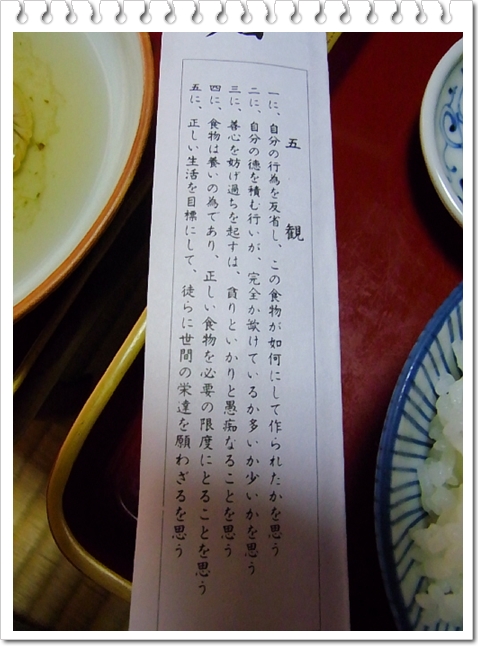 五観
一に、自分の行為を反省し、この食物が如何にして作られたかを思う
二に、自分の徳を積む行いが、完全か欠けているか多いか少いかを思う
三に、善心を妨げ過ちを起すは、貪りといかりと愚痴なることを思う
四に、食物は養いの為であり、正しい食物を必要の限度にとることを思う
五に、正しい生活を目標にして、徒らに世間の栄達を願わざるを思う